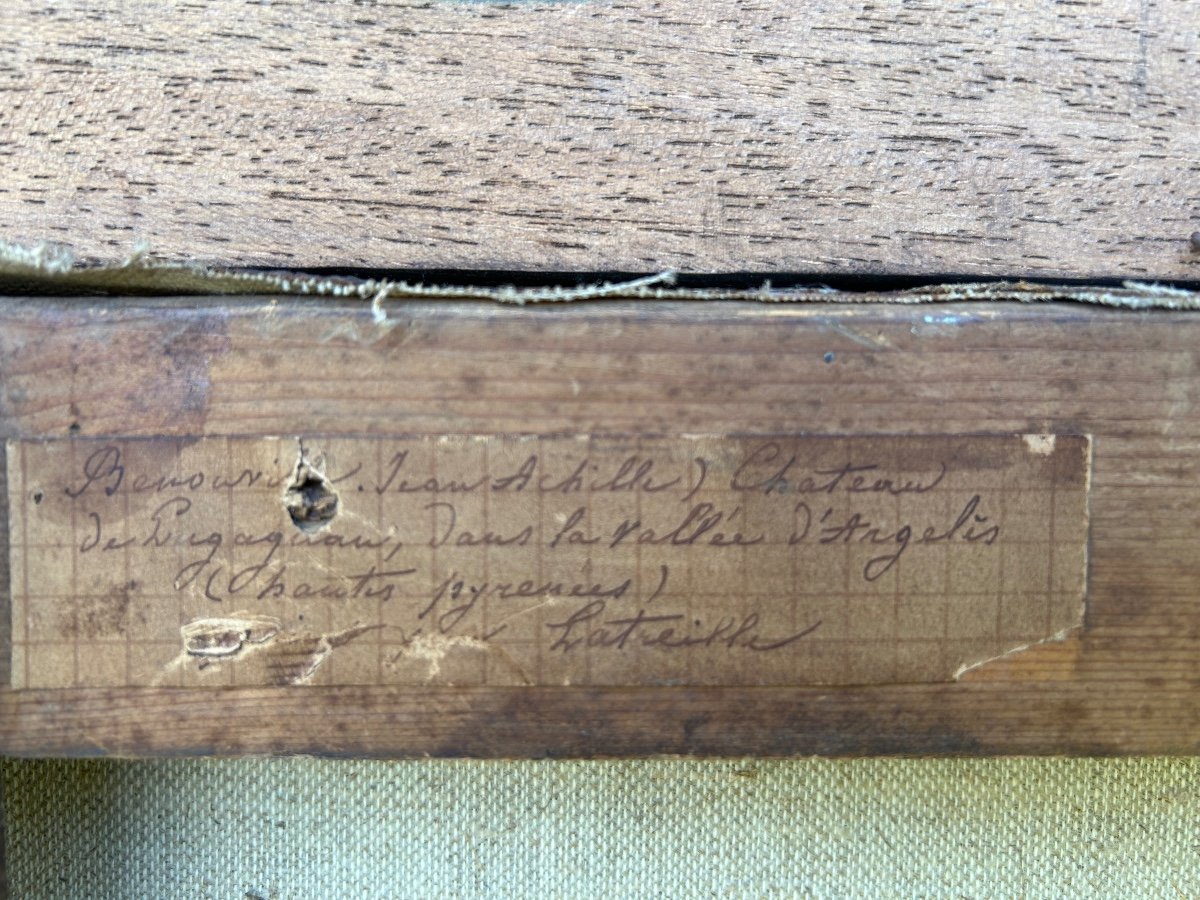 Benouvi . Jean Achille) Chateau
de Pugagnan, dans la vallée d'Argelès
(hautes pyrenées)
Latreille